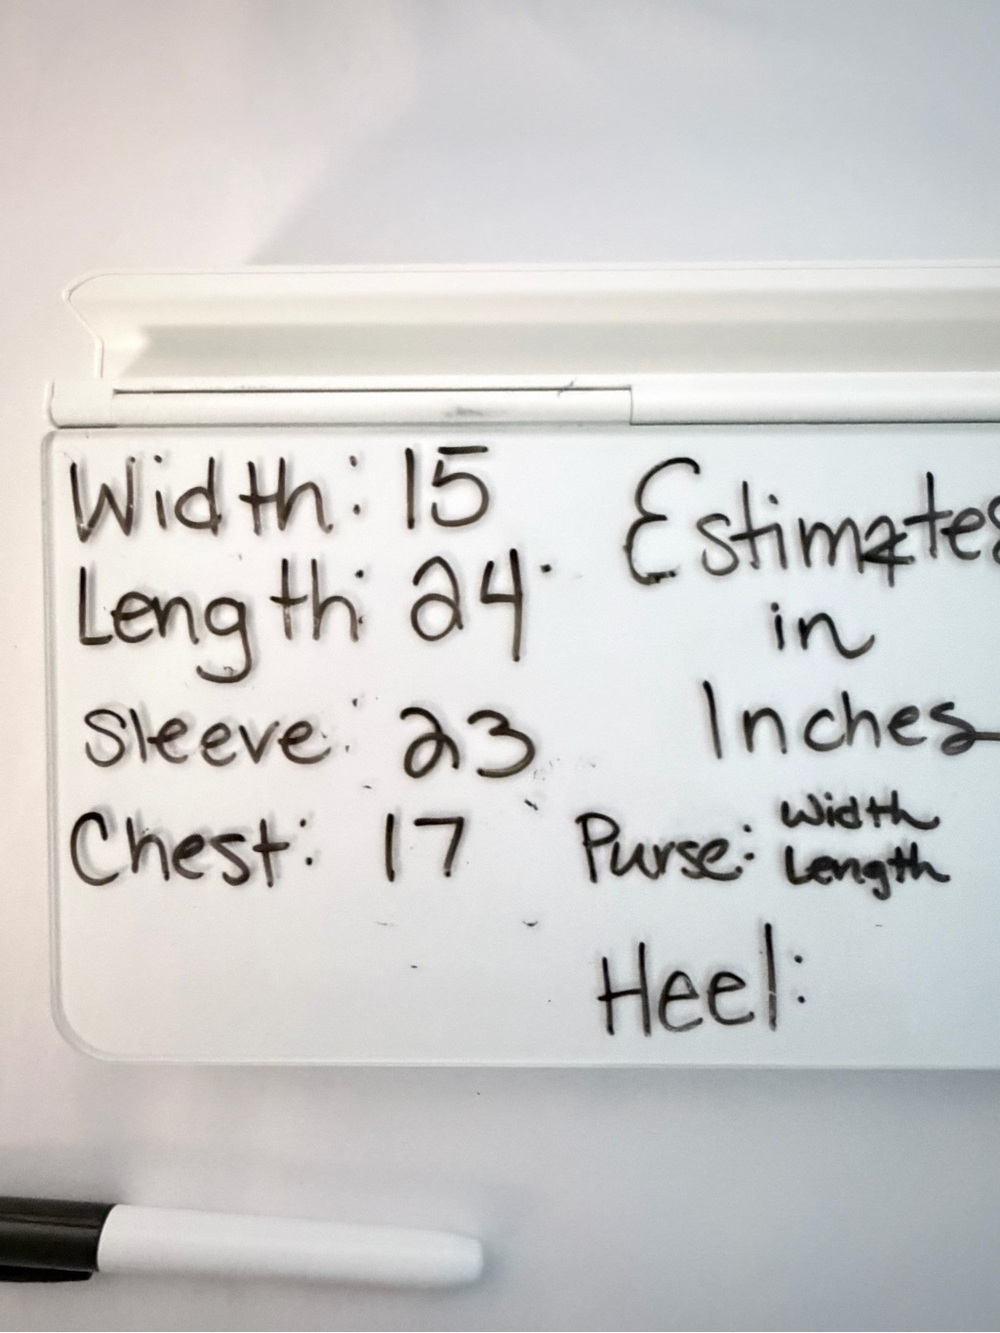 Width: 15
Length: 24
Sleeve: 23
Chest: 17
Estimates
in
Inches
Purse: Width
Length
Heel: